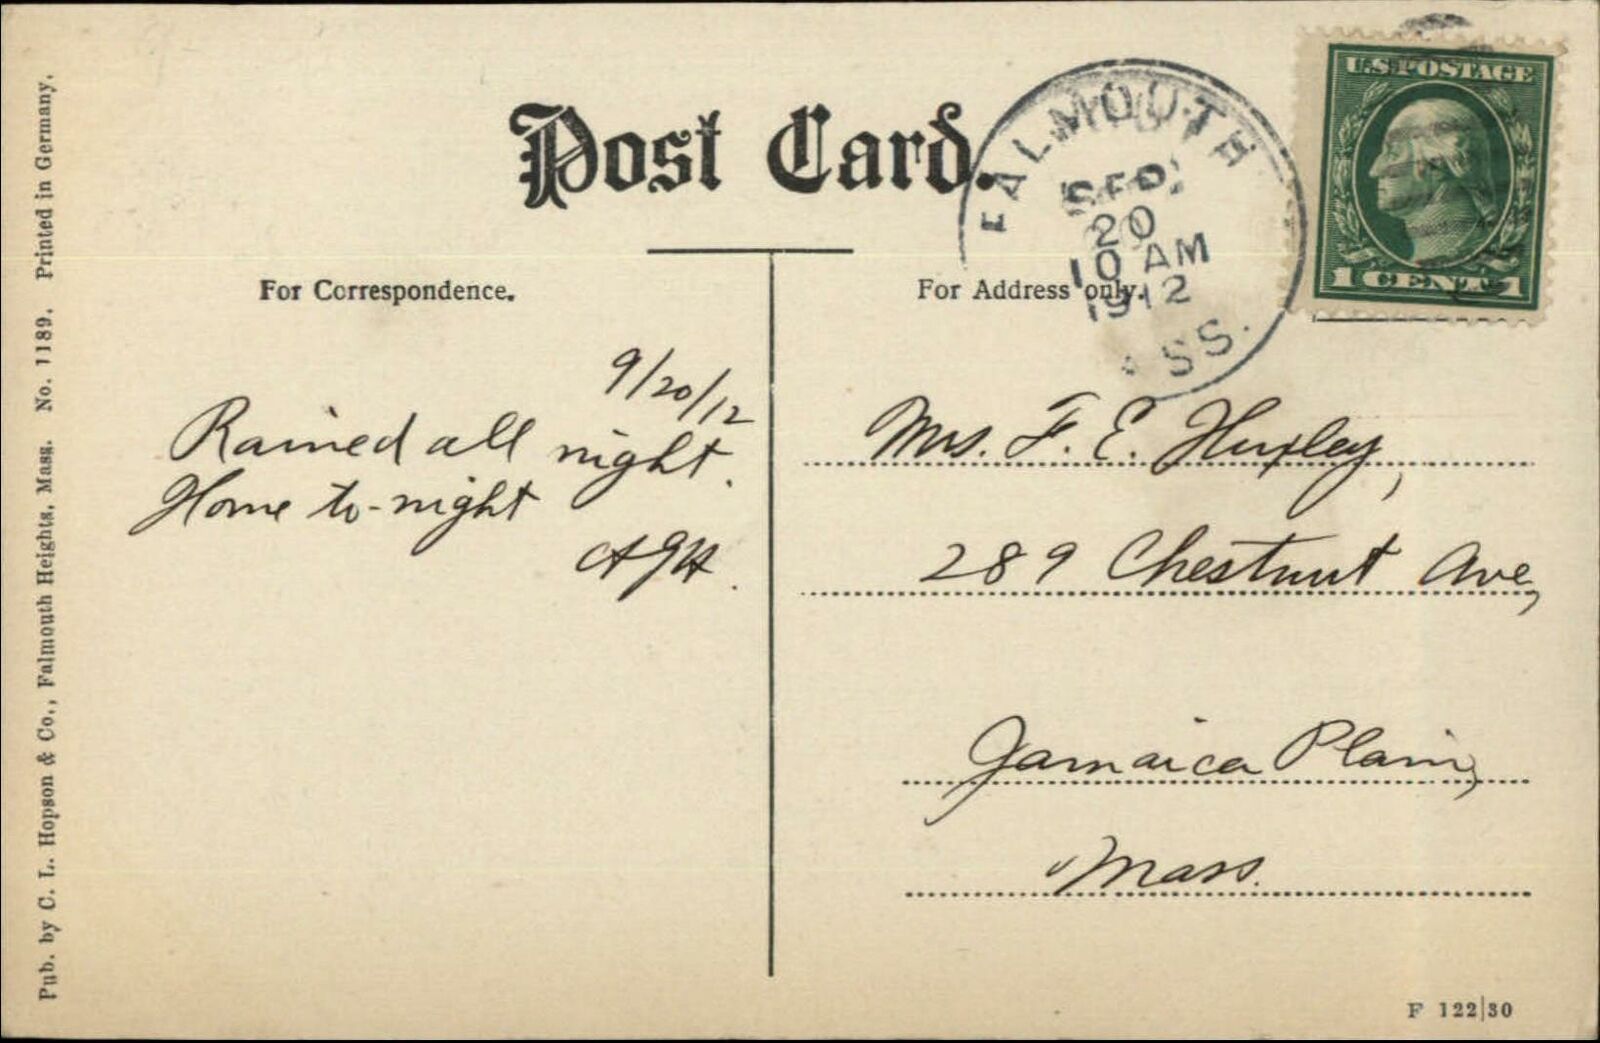 Post Card.
For Correspondence.
For Address only.
FALMOUTH
SEP
20
10 AM
1912
SS.
U.S. POSTAGE
1 CENT 1
9/20/12
Rained all night.
Home to-night
AGH.
Mrs. F. E. Huxley,
289 Chestnut Ave,
Jamaica Plain,
Mass.
Pub. by C. L. Hopson & Co., Falmouth Heights, Mass. No. 1189. Printed in Germany.
F 122|30